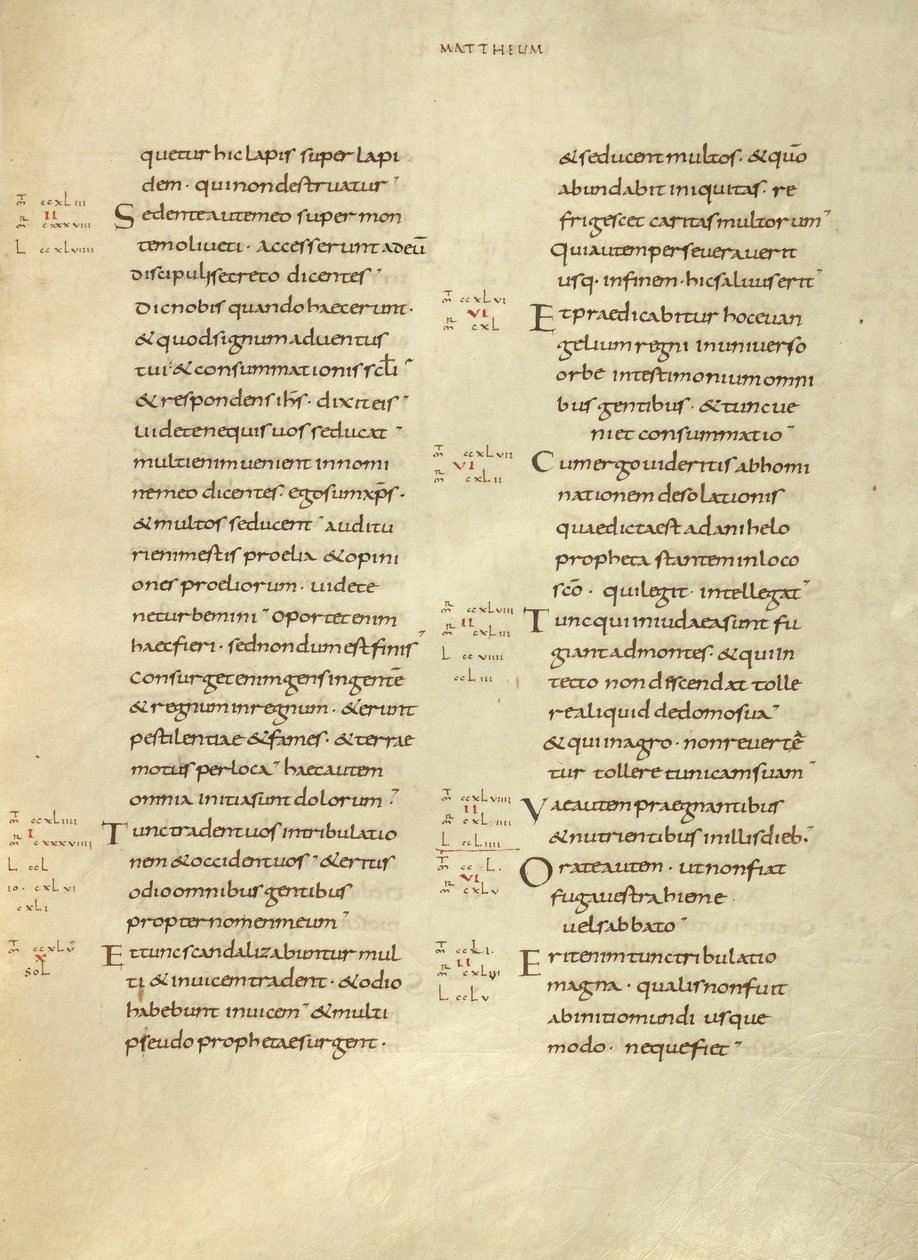 MATTHEUM
quetur hic lapis super lapi
dem · qui non destruatur
Sedente autem eo super mon
tem oliveti · accesserunt ad eū
discipuli secreto dicentes
Dic nobis quando haec erunt ·
& quod signum adventus
tui · & consummationis scli
& respondens ihs · dixit eis
Uidete nequis uos seducat
multi enim uenient in nomi
ne meo dicentes · ego sum xps ·
& multos seducent auditu
ri enim estis proelia & opini
ones proeliorum · uidete
ne turbemini Oportet enim
haec fieri · sed nondum est finis
Consurget enim gens in gentē
& regnum in regnum · & erunt
pestilentiae & fames · & terrae
motus per loca haec autem
omnia initia sunt dolorum
Tunc tradent uos in tribulatio
nem & occident uos & eritis
odio omnibus gentibus
propter nomen meum
Et tunc scandalizabuntur mul
ti & invicem tradent · & odio
habebunt invicem & multi
pseudo prophetae surgent ·
& seducent multos · & quō
abundabit iniquitas · re
frigescet caritas multorum
Qui autem perseveraverit
usq · in finem · hic saluus erit
Et praedicabitur hoc evan
gelium regni in universo
orbe in testimonium omni
bus gentibus · & tunc ve
niet consummatio
Cum ergo uideritis abhomi
nationem desolationis
quae dicta est a danihelo
propheta stantem in loco
scō · qui legit · intellegat
Tunc qui in iudaea sunt fu
giant ad montes · & qui in
tecto non descendat tolle
re aliquid de domo sua
& qui in agro · non revertē
tur tollere tunicam suam
Vae autem praegnantibus
& nutrientibus in illis dieb ·
Orate autem · ut non fiat
fuga uestra hieme
uel sabbato
Erit enim tunc tribulatio
magna · qualis non fuit
ab initio mundi usque
modo · neque fiet
m ccxLiii
II
m cxxxviiii
L ccxLviiii
m ccxLiiii
I
m cxxxviiii
L ccL
io · cxLvi
cxLi
m ccxLv
X
soL
m ccxLvi
VI
m cxL
m ccxLvii
VI
m cxLii
m ccxLviii
II
m cxLiii
L ccviiii
ccLiii
m ccxLviiii
II
m cxLiiii
L ccLiiii
m ccL ·
VI
m cxLv
m ccLi ·
II
m cxLvi
L ccLv